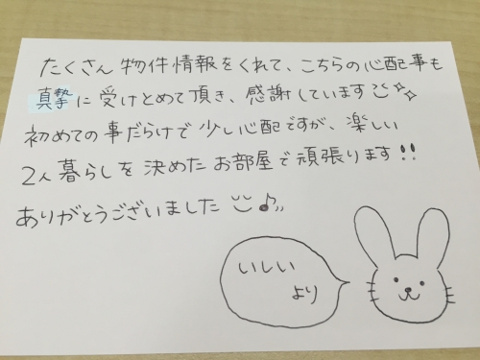 たくさん物件情報をくれて、こちらの心配事も
真摯に受けとめて頂き、感謝しています
初めての事だらけで少し心配ですが、楽しい
2人暮らしを決めたお部屋で頑張ります!!
ありがとうございました♪
いしい
より